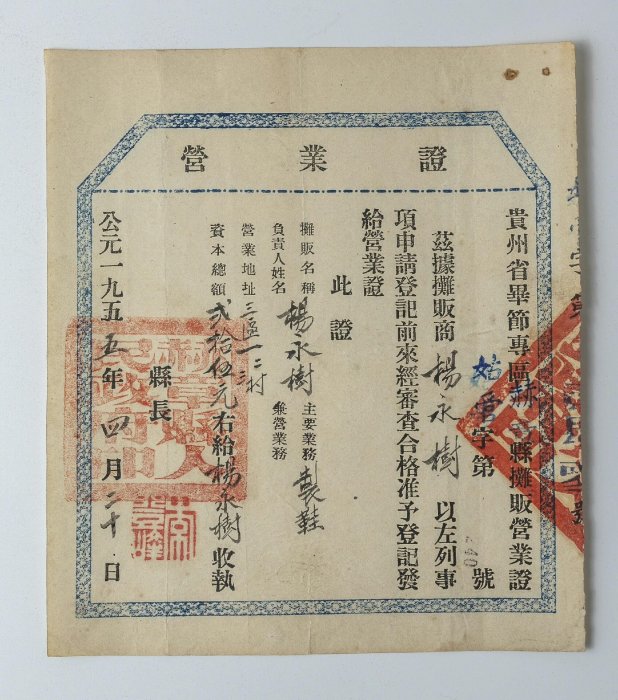 營業證
貴州省畢節專區赫章縣攤販營業證
字第240號
茲據攤販商楊永樹以左列事
項申請登記前來經審查合格准予登記發
給營業證
此證
攤販名稱 楊永樹 主要業務 製鞋
負責人姓名 兼營業務
營業地址 三區一二村
資本總額 弍拾伍元右給楊永樹收執
縣長
公元一九五五年四月二十日